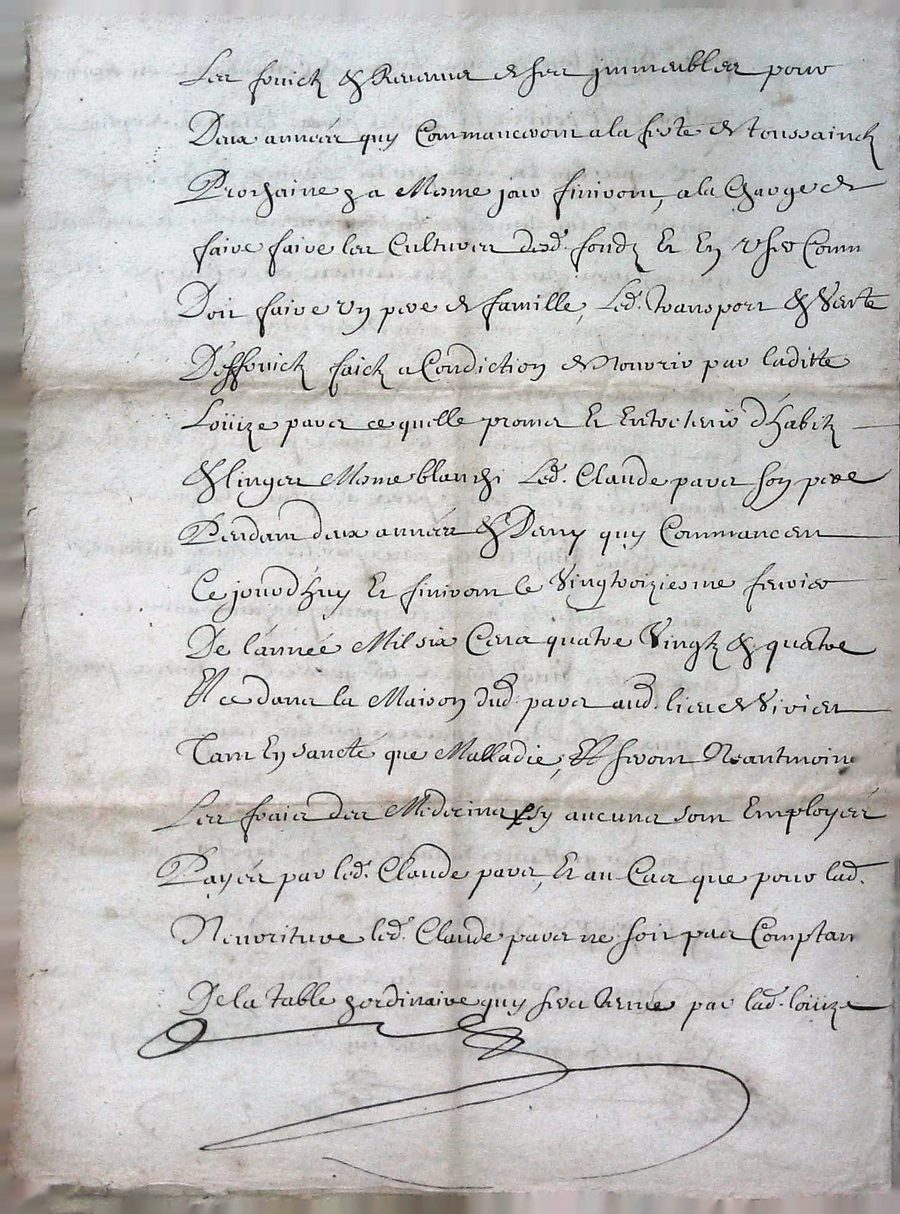 Les fruictz & Revenus de ses immeubles pour
Deux années quy Commanceront a la feste de toussainctz
Prochaine & a Mesme jour finiront, a la Charge de
faire faire les Cultures desd. fondz Et En User Comm
Doit faire Un pere de famille, Led. transport & Vente
Desffruictz faictz a Condiction de Nourrir par laditte
Loüize paret ce quelle promet Et Entretenir d'habitz
& linges Mesme blanchi Led. Claude paret son pere
Pendant deux années & Demy quy Commancent
Ce jourd'huy Et finiront le Vingtroiziesme fevrier
De l'année Mil six Cens quatre Vingtz & quatre
Et ce dans la Maison dud. paret aud. lieu de Vivier
Tant En sancté que Malladie, Et seront Neantmoins
Les frais des Medecins sy aucuns sont Employés
Payés par led. Claude paret, Et au Cas que pour lad.
Nourriture led. Claude paret ne soit pas Comptan
De la table ordinaire quy sera tenue par lad. loüize